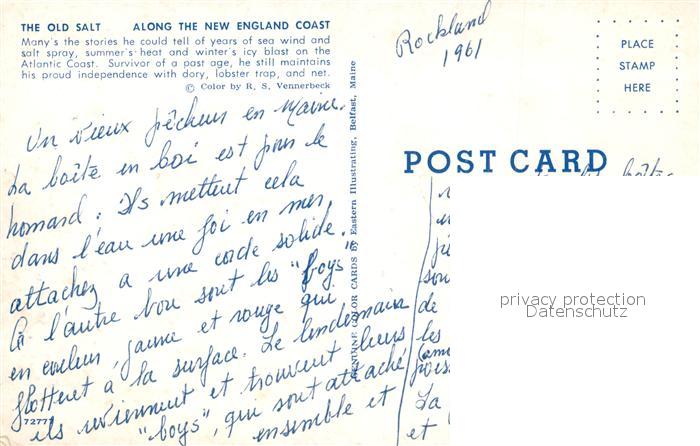 THE OLD SALT ALONG THE NEW ENGLAND COAST
Many's the stories he could tell of years of sea wind and
salt spray, summer's heat and winter's icy blast on the
Atlantic Coast. Survivor of a past age, he still maintains
his proud independence with dory, lobster trap, and net.
© Color by R. S. Vennerbeck
Un vieux pêcheur en Maine.
La boîte en boi est pour le
homard : Ils mettent cela
dans l'eau une foi en mer,
attachez a une corde solide.
à l'autre bou sont les "boys"
en couleur, jaune et rouge qui
flottent à la surface. Le lendemain
ils reviennent et trouvent leurs
"boys", qui sont attaché
ensemble et
72777
GENUINE COLOR CARDS by Eastern Illustrating, Belfast, Maine
Rockland
1961
PLACE
STAMP
HERE
POST CARD
boîtes
son
de
les
La
et
privacy protection
Datenschutz